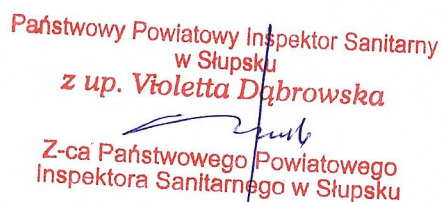 Państwowy Powiatowy Inspektor Sanitarny
w Słupsku
z up. Violetta Dąbrowska
Z-ca Państwowego Powiatowego
Inspektora Sanitarnego w Słupsku